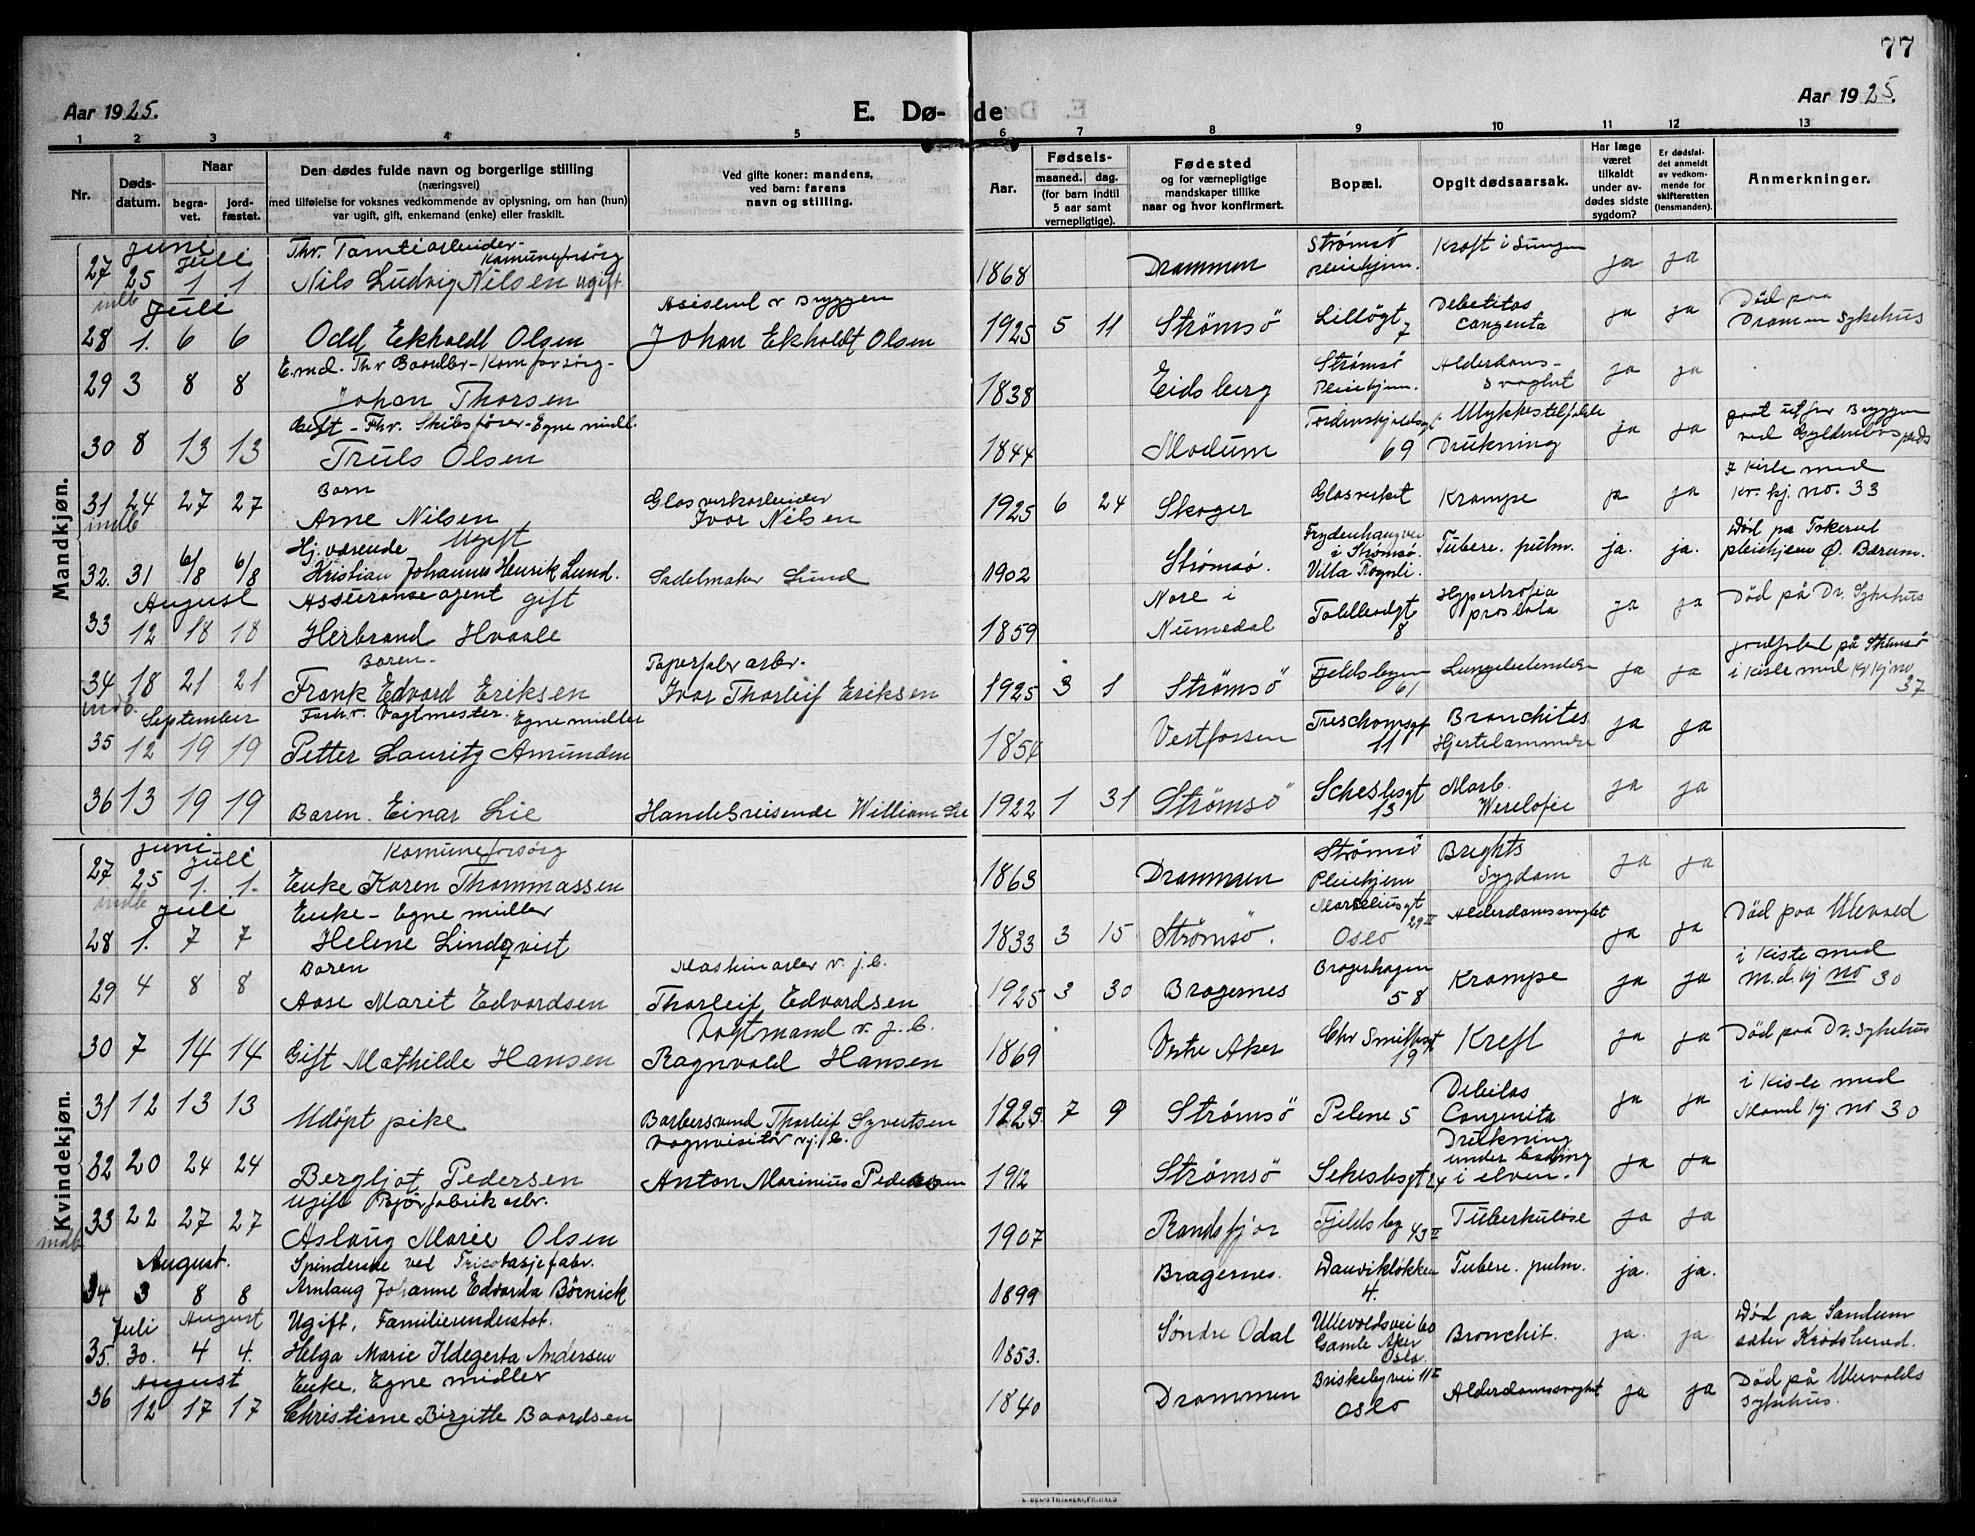 77
Aar 1925.
E. Dø-
de
Aar 1925.
1 2 3 4 5 6 7 8 9 10 11 12 13
Nr.
Døds-
datum.
Naar
begra-
vet.
jord-
fæstet.
Den dødes fulde navn og borgerlige stilling
(næringsvei)
med tilføielse for voksnes vedkommende av oplysning, om han (hun)
var ugift, gift, enkemand (enke) eller fraskilt.
Ved gifte koner: mandens,
ved barn: farens
navn og stilling.
Aar.
Fødsels-
maaned. dag.
(for barn indtil
5 aar samt
vernepligtige).
Fødested
og for værnepligtige
mandskaper tillike
naar og hvor konfirmert.
Bopæl.
Opgit dødsaarsak.
Har læge
været
tilkaldt
under av-
dødes sidste
sygdom?
Er dødsfal-
det anmeldt
av vedkom-
mende for
skifteretten
(lensmanden).
Anmerkninger.
Mandkjøn.
Juni Juli Thv. Tomtearbeider-
Kamuneforsørg Strømsø Kræft i Lungen
27 25 1 1 Nils Ludvig Nilsen ugift 1868 Drammen Pleiehjem. ja ja
indb Juli Asistent v Bryggen Død paa
28 1. 6 6 Odd Ekholdt Olsen Johan Ekholdt Olsen 1925 5 11 Strømsø Lilløgt 7 Debetitas Cangenta ja ja Dramen Sykehus
E.md. Thv Boardbr-Kom forsørg- Strømsø Alderdoms-
29 3 8 8 Johan Thorsen 1838 Eidsberg Pleiehjem. svaghet ja ja
Gift - Fhv. Skibsfører - Egne midl. Tordenskjoldsgt Ulykkestilfælde gaat utfor Bryggen
30 8 13 13 Truls Olsen 1844 Modum 69 Drukning ja ja ved Gyldenløvs plads
Barn Glasverkarbeider I Kiste med
31 24 27 27 Arne Nilsen Ivar Nilsen 1925 6 24 Skoger Glasverket Krampe ja ja Kv. kj. no. 33
indb Hj. værende Ugift Frydenhaugvei Død på Tokerud
32. 31 6/8 6/8 Kristian Johannes Henrik Lund. Sadelmaker Lund 1902 Strømsø. i Strømsø. Villa Rognli. Tuberc. pulm. ja. ja. pleiehjem Ø. Bærum.
August Assuranseagent gift Nore i Hypertrofia
33 12 18 18 Herbrand Hvaale 1859 Numedal Toldbodgt 8 prostata ja ja Død på Dr. Sykehus
Baren- Papirfabr arbr. jordfæstet på Strømsø
34 18 21 21 Frank Edvard Eriksen Ivar Thorleif Eriksen 1925 3 1 Strømsø Fjeldsbyen 61 Lungebetendelse ja ja i kiste med Kv kj no 37
indb. September Forhv. Vagtmester. Egne midler
35 12 19 19 Petter Lauritz Amundsen 1854 Vestfossen Treschowsgt 11 Bronchites Hjertelammelse ja ja
36 13 19 19 Baren. Einar Lie Handelsreisende William Lie 1922 1 31 Strømsø Schesbsgt 13 Morb. Werelofie ja ja
Kvindekjøn.
Juni Juli Kamuneforsørg Strømsø Brights
27 25 1. 1. Enke Karen Thommassen 1863 Drammen Pleiehjem Sygdom ja ja
indb Juli Enke - Egne midler Marseliusgt 29 II
28 1. 7 7 Helene Lindqvist 1833 3 15 Strømsø. Oslo Alderdomssvaghet ja ja Død paa Ulevold
Baren Maskinarbr v. j.b. i kiste med
29 4 8 8 Aase Marit Edvardsen Thorleif Edvardsen 1925 3 30 Bragernes Bragerhagen 58 Krampe ja ja M.d. kj no 30
Vogtmand v. j.b.
30 7 14 14 Gift Mathilde Hansen Ragnvald Hansen 1869 Vestre Aker Chr Smithsgt 19 Kreft ja ja Død paa Dr. Sykehus
31 12 13 13 Udøpt pike Barbersvend Thorleif Syvertsen 1925 7 9 Strømsø Pelene 5 Debilas Congenita ja ja i Kiste med Mand kj no 30
Vognvisitør v. j. b. Drukning
32 20 24 24 Bergljot Pedersen Anton Marinius Pedersen 1912 Strømsø Schesbsgt 24 under bading i elven. ja ja
Ugift Bjørfabrik arbr.
33 22 27 27 Aslaug Marie Olsen 1907 Randsfjor Fjeldsby 43 II Tuberkuløse ja ja
indb August. Spinderske ved Tricotasjefabr.
34 3 8 8 Arnlaug Johanne Edvarda Børnick 1899 Bragernes. Danvikløkken 4. Tuberc. pulm. ja. ja.
Juli August Ugift. Familieunderstøt. Død på Sandum
35. 30. 4 4. Helga Marie Ildegerta Andersen 1853. Søndre Odal Ullevoldsvei 60 Gamle Aker Oslo. Bronchit. ja. ja. sæter Krødsherad.
August Enke. Egne midler Briskebyvei 11 I Død på Ulevolds
36 12 17 17 Christiane Birgitte Baardsen 1840 Drammen Oslo Alderdomssvaghet ja ja Sykehus.